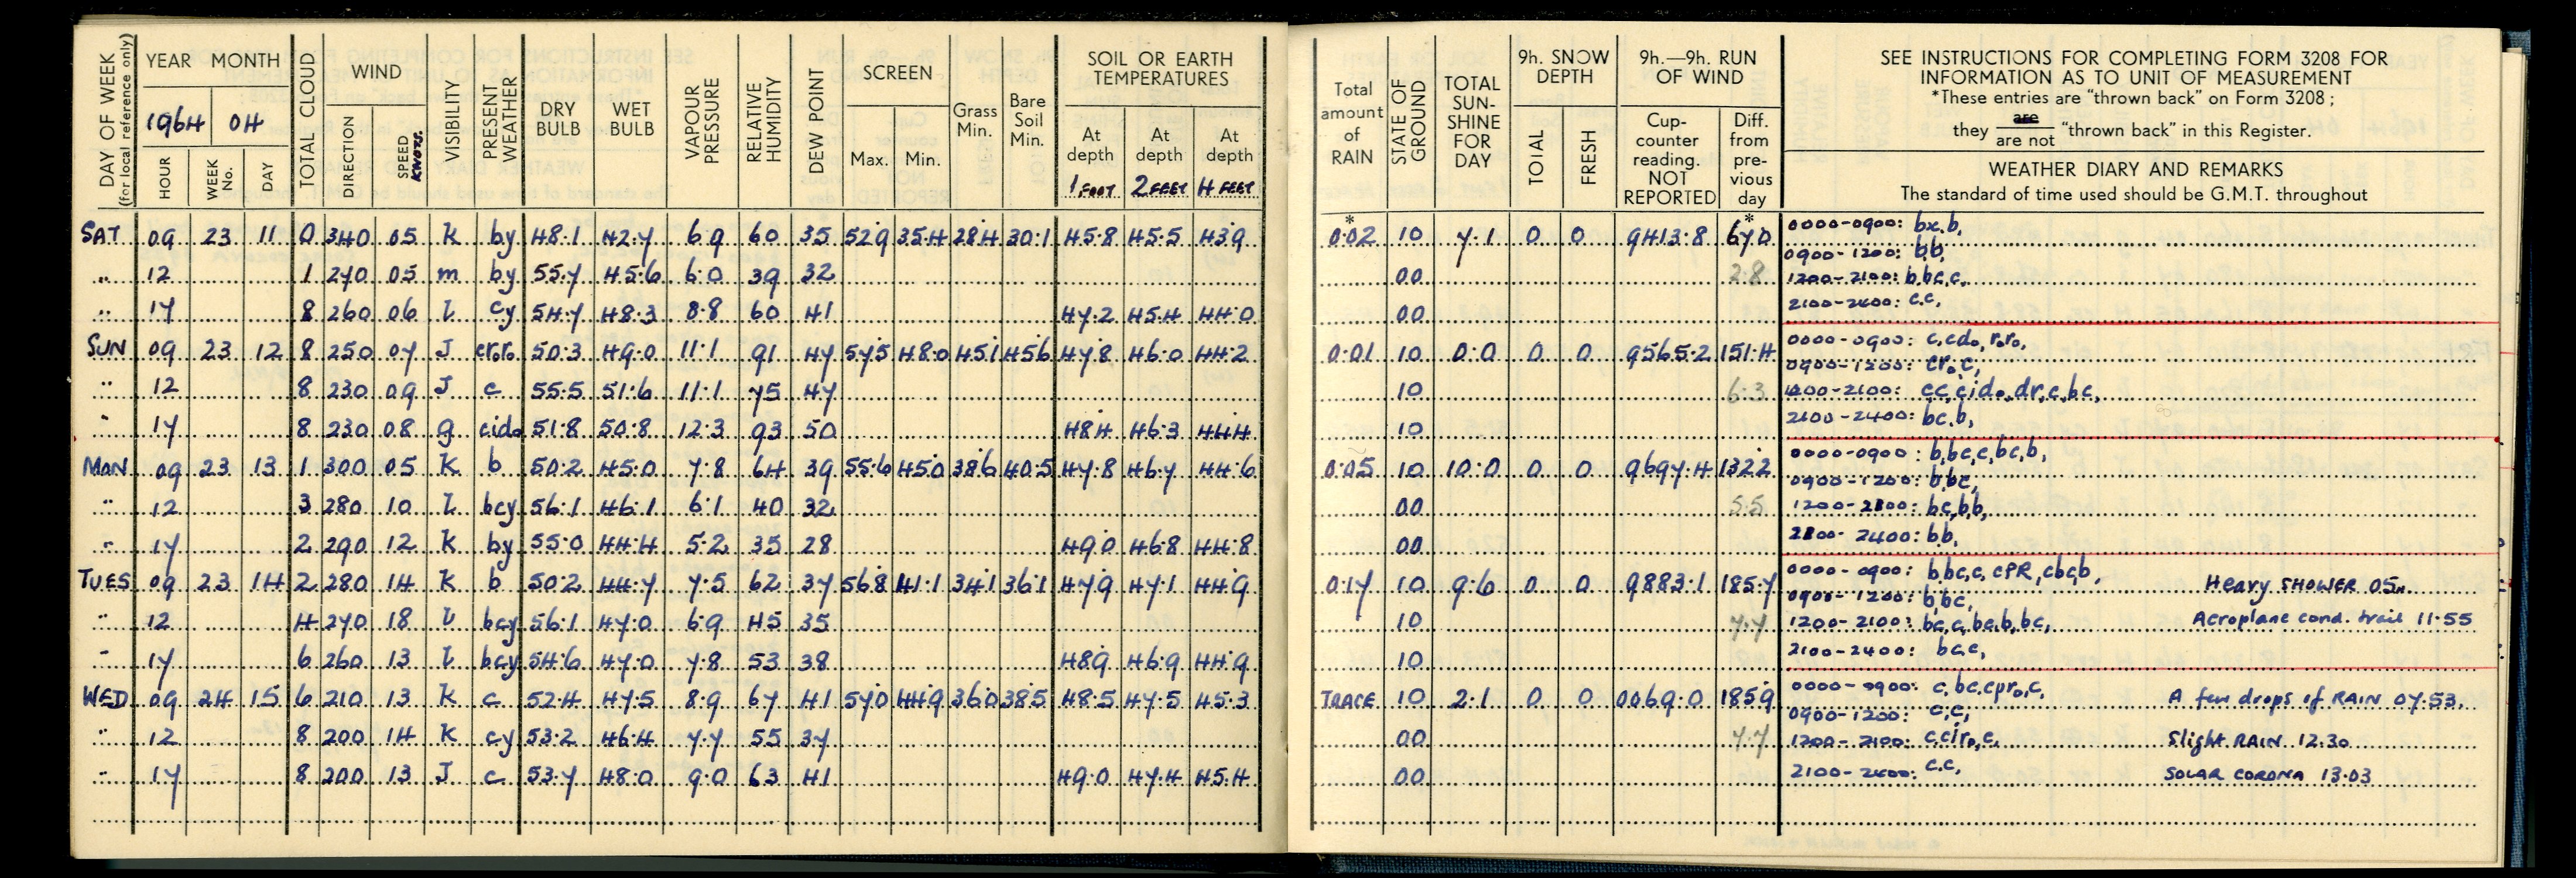 DAY OF WEEK
(for local reference only)
YEAR MONTH
1964 04
HOUR
WEEK No.
DAY
TOTAL CLOUD
WIND
DIRECTION
SPEED KNOTS.
VISIBILITY
PRESENT WEATHER
DRY BULB
WET BULB
VAPOUR PRESSURE
RELATIVE HUMIDITY
DEW POINT
SCREEN
Max. Min.
Grass Min.
Bare Soil Min.
SOIL OR EARTH
TEMPERATURES
At depth 1 FOOT
At depth 2 FEET
At depth 4 FEET
SAT 09 23 11 0 340 05 K by 48.1 42.7 6.9 60 35 52.9 35.4 28.4 30.1 45.8 45.5 43.9
" 12 1 270 05 m by 55.7 45.6 6.0 39 32
" 17 8 260 06 l cy 54.7 48.3 8.8 60 41 47.2 45.4 44.0
SUN 09 23 12 8 250 07 J cr₀r₀ 50.3 49.0 11.1 91 47 57.5 48.0 45.1 45.6 47.8 46.0 44.2
" 12 8 230 09 J c 55.5 51.6 11.1 75 47
" 17 8 230 08 g cid₀ 51.8 50.8 12.3 93 50 48.4 46.3 44.4
MON 09 23 13 1 300 05 K b 50.2 45.0 7.8 64 39 55.6 45.0 38.6 40.5 47.8 46.7 44.6
" 12 3 280 10 l bcy 56.1 46.1 6.1 40 32
" 17 2 290 12 K by 55.0 44.4 5.2 35 28 49.0 46.8 44.8
TUES 09 23 14 2 280 14 K b 50.2 44.7 7.5 62 37 56.8 41.1 34.1 36.1 47.9 47.1 44.9
" 12 4 270 18 l bcy 56.1 47.0 6.9 45 35
" 17 6 260 13 l bcy 54.6 47.0 7.8 53 38 48.9 46.9 44.9
WED 09 24 15 6 210 13 K c 52.4 47.5 8.9 67 41 57.0 44.9 36.0 38.5 48.5 47.5 45.3
" 12 8 200 14 K cy 53.2 46.4 7.7 55 37
" 17 8 200 13 J c 53.7 48.0 9.0 63 41 49.0 47.4 45.4
Total amount of RAIN
STATE OF GROUND
TOTAL SUN-SHINE FOR DAY
9h. SNOW DEPTH
TOTAL
FRESH
9h.—9h. RUN OF WIND
Cup-counter reading. NOT REPORTED
Diff. from pre-vious day
SEE INSTRUCTIONS FOR COMPLETING FORM 3208 FOR
INFORMATION AS TO UNIT OF MEASUREMENT
*These entries are "thrown back" on Form 3208 ;
they are / are not "thrown back" in this Register.
WEATHER DIARY AND REMARKS
The standard of time used should be G.M.T. throughout
* *
0.02 10 7.1 0 0 9413.8 67.0 0000-0900: bx,b,
0900-1200: b,b,
00 2.8 1200-2100: b,bc,c,
00 2100-2400: c,c,
0.01 10 0.0 0 0 9565.2 151.4 0000-0900: c,cd₀,r₀r₀,
0900-1200: cr₀,c,
10 6.3 1200-2100: cc,cid₀,dr,c,bc,
10 2100-2400: bc,b,
0.05 10 10.0 0 0 9697.4 132.2 0000-0900: b,bc,c,bc,b,
0900-1200: b,bc,
00 5.5 1200-2100: bc,b,b,
00 2100-2400: b,b,
0.17 10 9.6 0 0 9883.1 185.7 0000-0900: b,bc,c,cPR,cbc,b, Heavy SHOWER 05H
0900-1200: b,bc,
10 7.7 1200-2100: bc,c,bc,b,bc, Aeroplane cond. trail 11.55
10 2100-2400: bc,c,
TRACE 10 2.1 0 0 0069.0 185.9 0000-0900: c,bc,cpr₀,c, A few drops of RAIN 07.53.
0900-1200: c,c,
00 7.7 1200-2100: c,cir₀,c, Slight RAIN 12.30
00 2100-2400: c,c, SOLAR CORONA 13.03